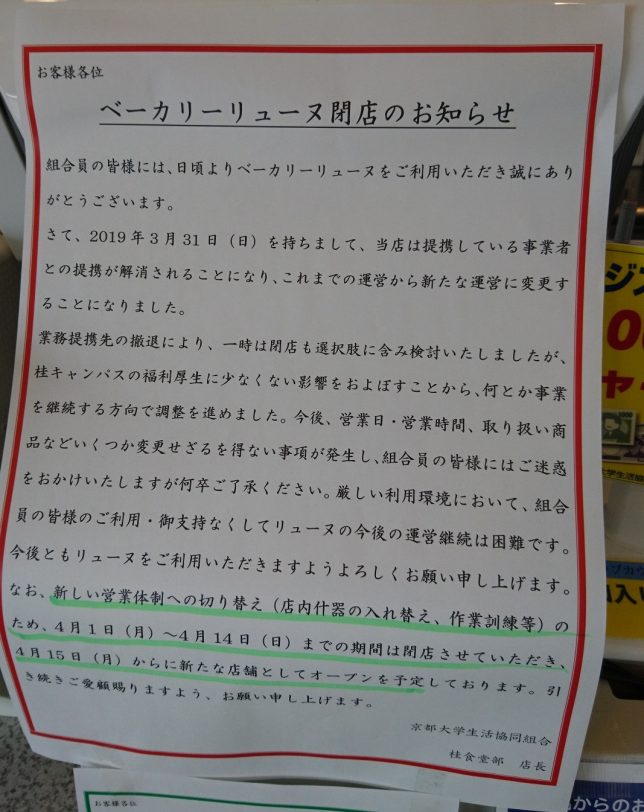 お客様各位
ベーカリーリューヌ閉店のお知らせ
組合員の皆様には、日頃よりベーカリーリューヌをご利用いただき誠にあり
がとうございます。
さて、2019年3月31日（日）を持ちまして、当店は提携している事業者
との提携が解消されることになり、これまでの運営から新たな運営に変更す
ることになりました。
業務提携先の撤退により、一時は閉店も選択肢に含み検討いたしましたが、
桂キャンパスの福利厚生に少なくない影響をおよぼすことから、何とか事業
を継続する方向で調整を進めました。今後、営業日・営業時間、取り扱い商
品などいくつか変更せざるを得ない事項が発生し、組合員の皆様にはご迷惑
をおかけいたしますが何卒ご了承ください。厳しい利用環境において、組合
員の皆様のご利用・御支持なくしてリューヌの今後の運営継続は困難です。
今後ともリューヌをご利用いただきますようよろしくお願い申し上げます。
なお、新しい営業体制への切り替え（店内什器の入れ替え、作業訓練等）の
ため、4月1日（月）～4月14日（日）までの期間は閉店させていただき、
4月15日（月）からに新たな店舗としてオープンを予定しております。引
き続きご愛顧賜りますよう、お願い申し上げます。
京都大学生活協同組合
桂食堂部　店長
お客様各位
からのお